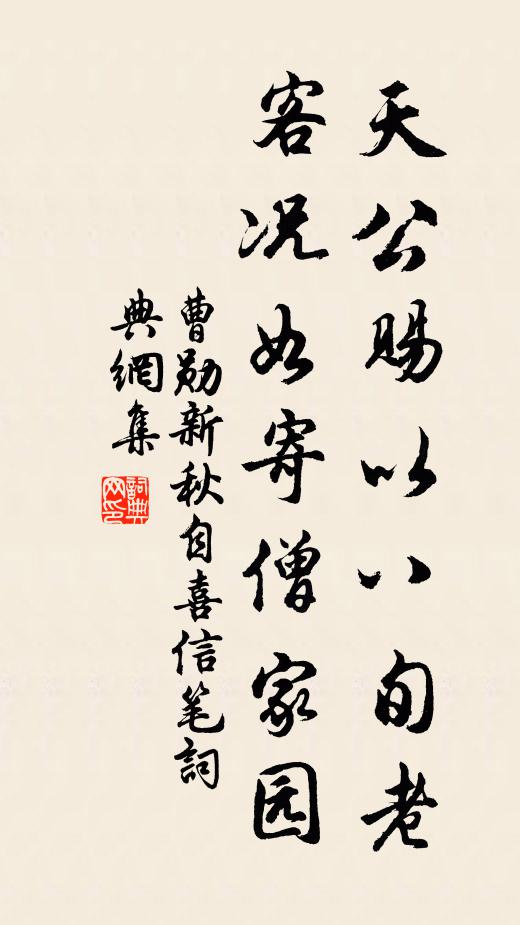 天公賜以八旬老
客况如寄僧家园
曹勋新秋自喜信笔詞
典網集
詞典网印